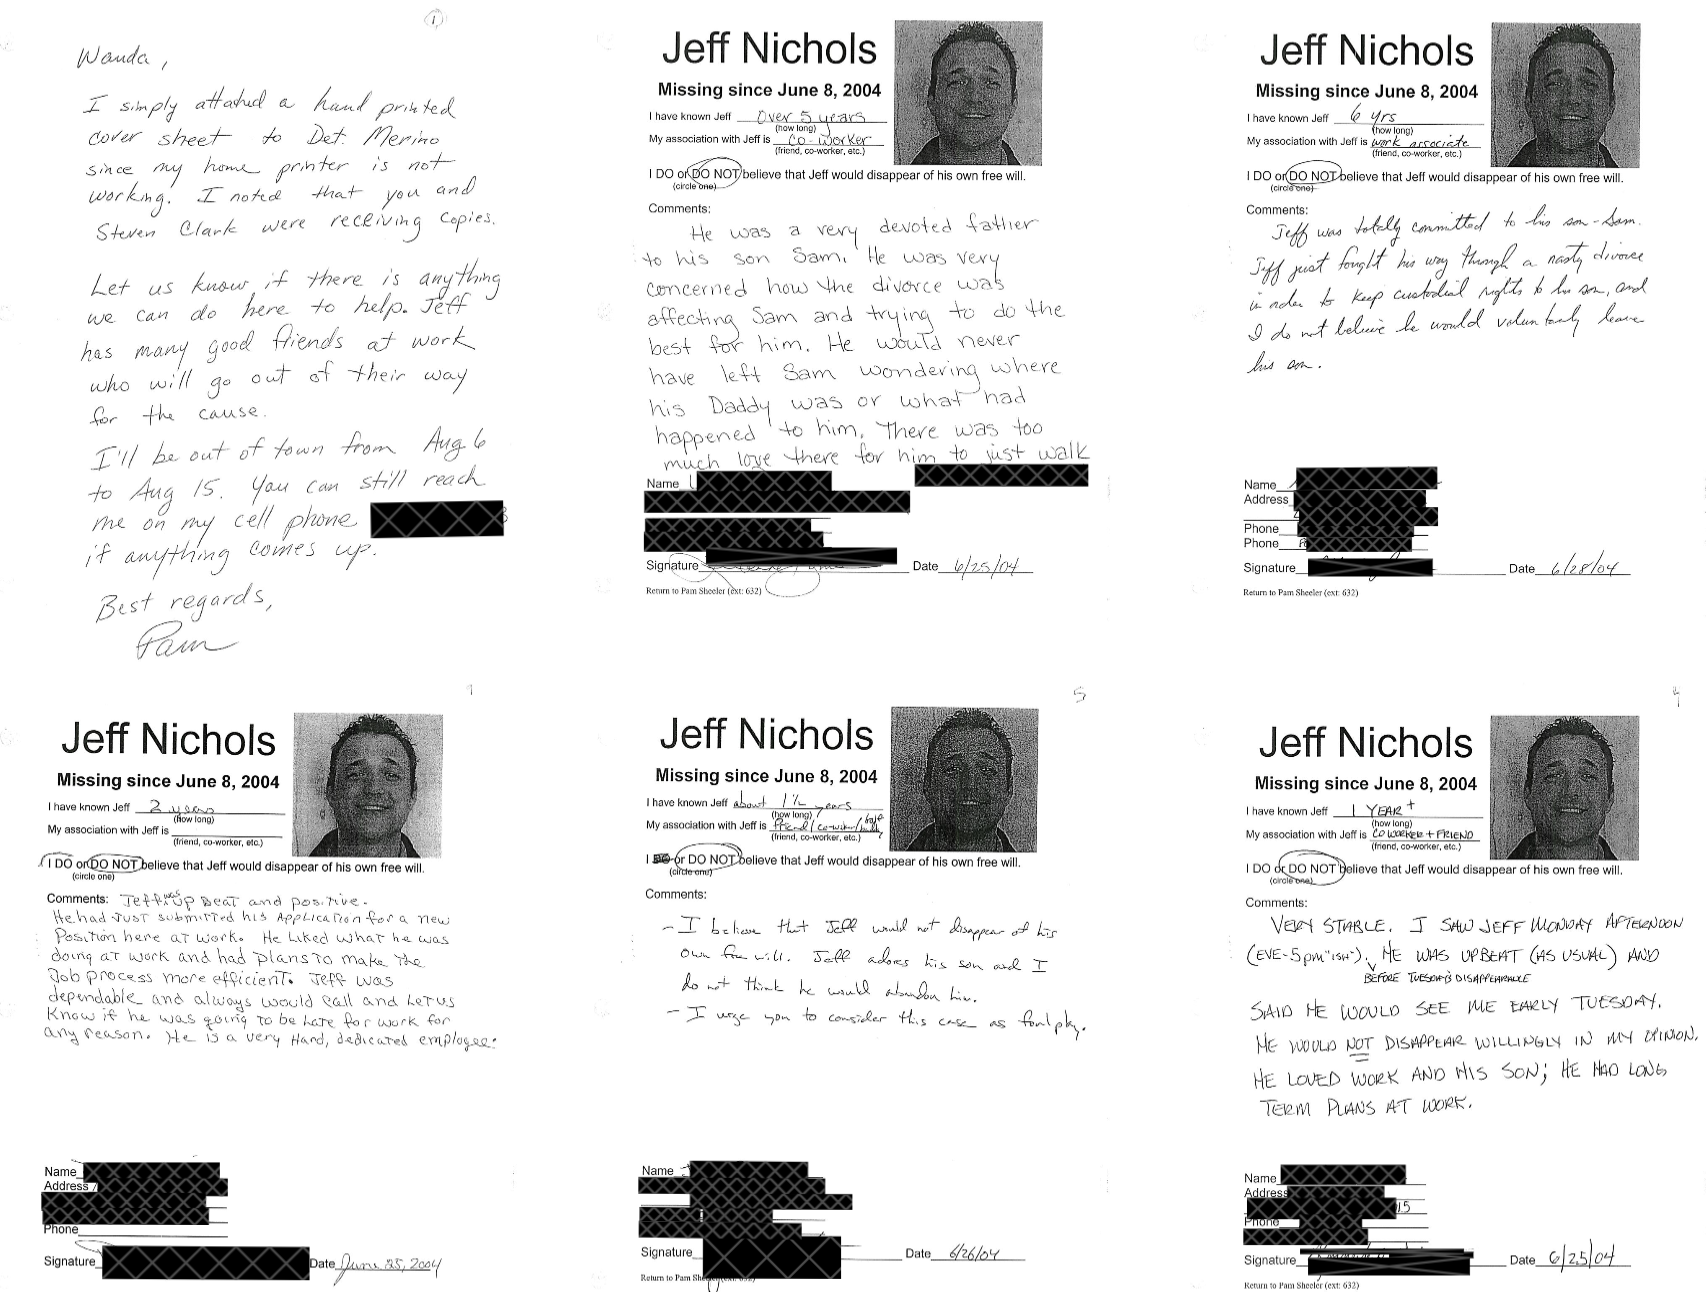 1
Wanda,
I simply attached a hand printed
cover sheet to Det. Merino
since my home printer is not
working. I noted that you and
Steven Clark were receiving copies.
Let us know if there is anything
we can do here to help. Jeff
has many good friends at work
who will go out of their way
for the cause.
I'll be out of town from Aug 6
to Aug 15. You can still reach
me on my cell phone
if anything comes up.
Best regards,
Pam
Jeff Nichols
Missing since June 8, 2004
I have known Jeff Over 5 years
(how long)
My association with Jeff is Co-worker
(friend, co-worker, etc.)
I DO or DO NOT believe that Jeff would disappear of his own free will.
(circle one)
Comments:
He was a very devoted father
to his son Sam. He was very
concerned how the divorce was
affecting Sam and trying to do the
best for him. He would never
have left Sam wondering where
his Daddy was or what had
happened to him. There was too
much love there for him to just walk
Name
Signature Date 6/25/04
Return to Pam Sheeler (ext: 632)
Jeff Nichols
Missing since June 8, 2004
I have known Jeff 6 yrs
(how long)
My association with Jeff is work associate
(friend, co-worker, etc.)
I DO or DO NOT believe that Jeff would disappear of his own free will.
(circle one)
Comments:
Jeff was totally committed to his son - Sam.
Jeff just fought his way through a nasty divorce
in order to keep custodial rights to his son, and
I do not believe he would voluntarily leave
his son.
Name
Address
Phone
Phone
Signature Date 6/28/04
Return to Pam Sheeler (ext: 632)
Jeff Nichols
Missing since June 8, 2004
I have known Jeff 2 years
(how long)
My association with Jeff is
(friend, co-worker, etc.)
I DO or DO NOT believe that Jeff would disappear of his own free will.
(circle one)
Comments: Jeff was up Beat and positive.
He had Just submitted his Application for a new
Position here at work. He Liked what he was
doing at work and had plans to make the
Job process more efficient. Jeff was
dependable and always would call and Let us
Know if he was going to be Late for work for
any reason. He is a very Hard, dedicated employee.
Name
Address
Phone
Signature Date June 25, 2004
5
Jeff Nichols
Missing since June 8, 2004
I have known Jeff about 1½ years
(how long)
My association with Jeff is friend/co-worker/
(friend, co-worker, etc.)
I or DO NOT believe that Jeff would disappear of his own free will.
(circle one)
Comments:
- I believe that Jeff would not disappear of his
own free will. Jeff adores his son and I
do not think he would abandon him.
- I urge you to consider this case as foul play.
Name
Signature Date 6/26/04
Return to Pam
Jeff Nichols
Missing since June 8, 2004
I have known Jeff 1 YEAR +
(how long)
My association with Jeff is CO WORKER + FRIEND
(friend, co-worker, etc.)
I DO or DO NOT believe that Jeff would disappear of his own free will.
(circle one)
Comments:
VERY STABLE. I SAW JEFF MONDAY AFTERNOON
(EVE-5pm"ish"). HE WAS UPBEAT (AS USUAL) AND
BEFORE TUESDAY'S DISAPPEARANCE
SAID HE WOULD SEE ME EARLY TUESDAY.
HE WOULD NOT DISAPPEAR WILLINGLY IN MY OPINION.
HE LOVED WORK AND HIS SON; HE HAD LONG
TERM PLANS AT WORK.
Name
Address
15
Phone
Signature Date 6/25/04
Return to Pam Sheeler (ext: 632)